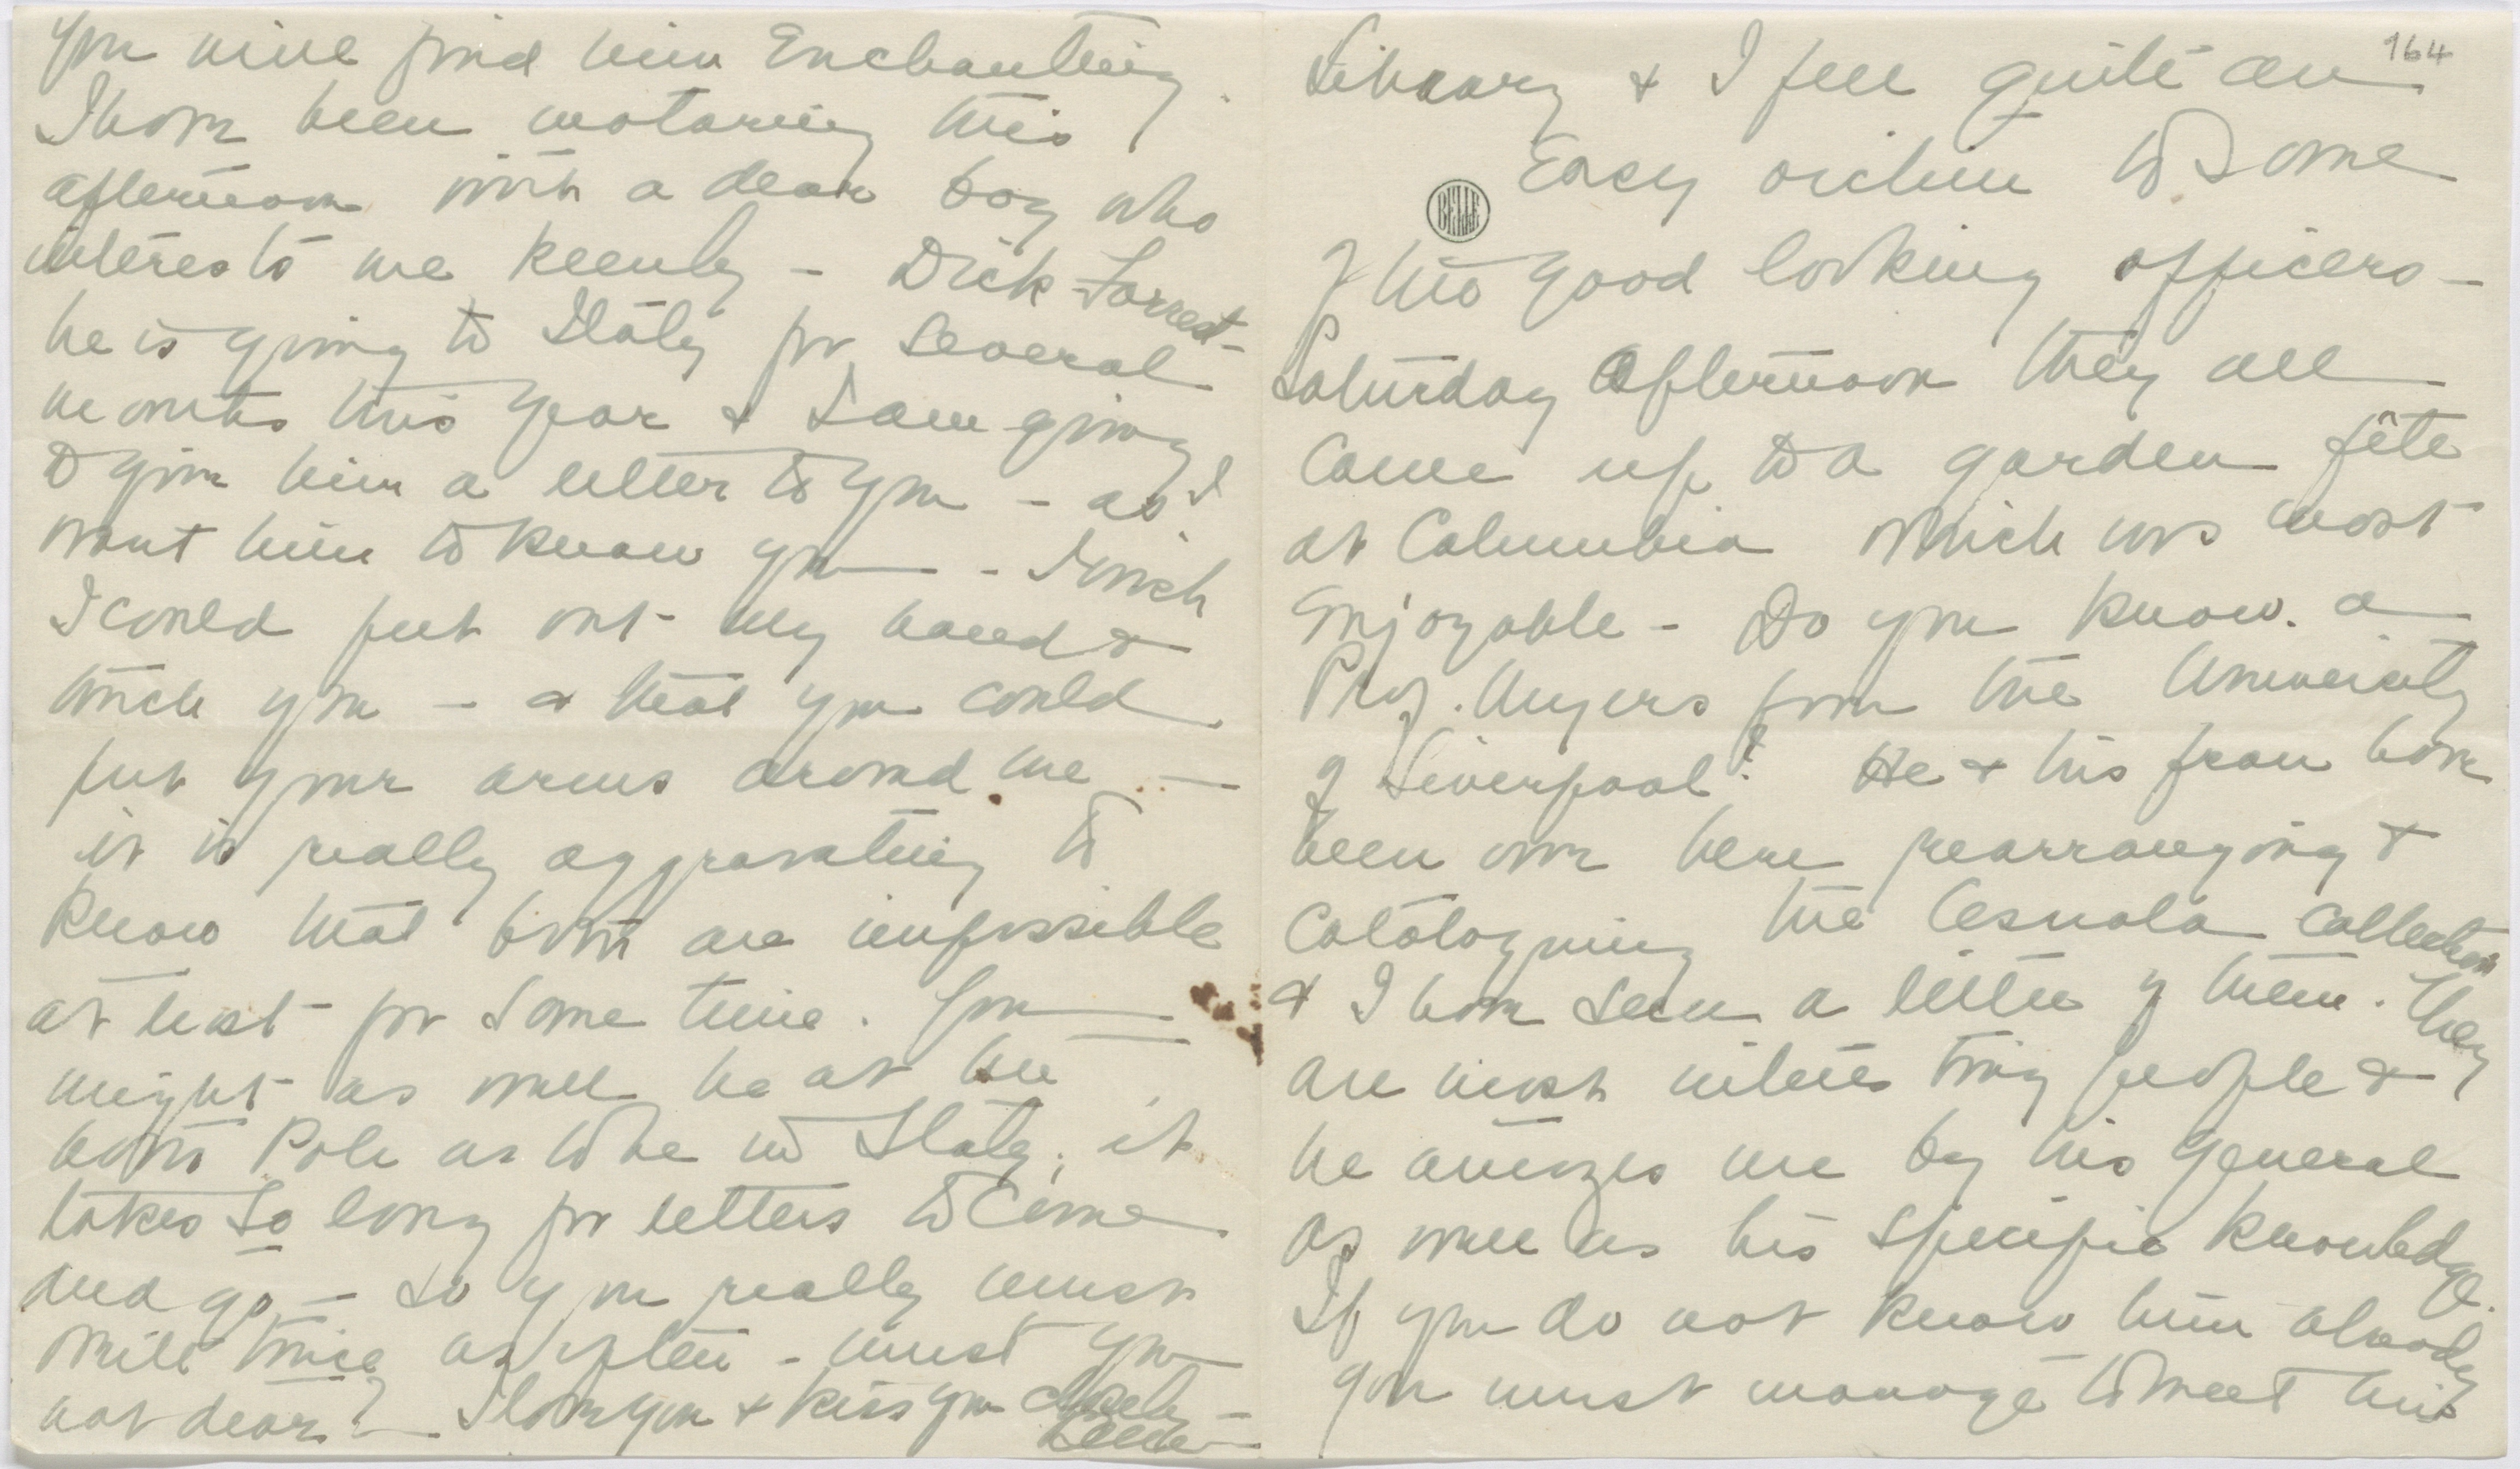 you will find him Enchanting.
I have been motoring this
afternoon with a dear boy who
interests me keenly - Dick Forrest -
he is going to Italy for several
months this year & I am going
to give him a letter to you - as I
want him to know you - I wish
I could put out my hand &
touch you - & that you could
put your arms around me -
it is really aggravating to
know that both are impossible
at least for some time. You
might as well be at the
North Pole as to be in Italy, it
takes so long for letters to come
and go - so you really must
write twice as often - must you
not dear? - I love you & kiss you
Belle
164
Library & I feel quite an
Easy victim to some
BELLE
of the good looking officers -
Saturday afternoon they all
came up to a garden fête
at Columbia which was most
Enjoyable - Do you know a
Prof. Myers from the University
of Liverpool? He & his frau have
been over here rearranging &
cataloguing the Cesnola collection
& I have seen a little of them. They
are most interesting people &
he amazes me by his general
as well as his specific knowledge.
If you do not know him already
you must manage to meet him